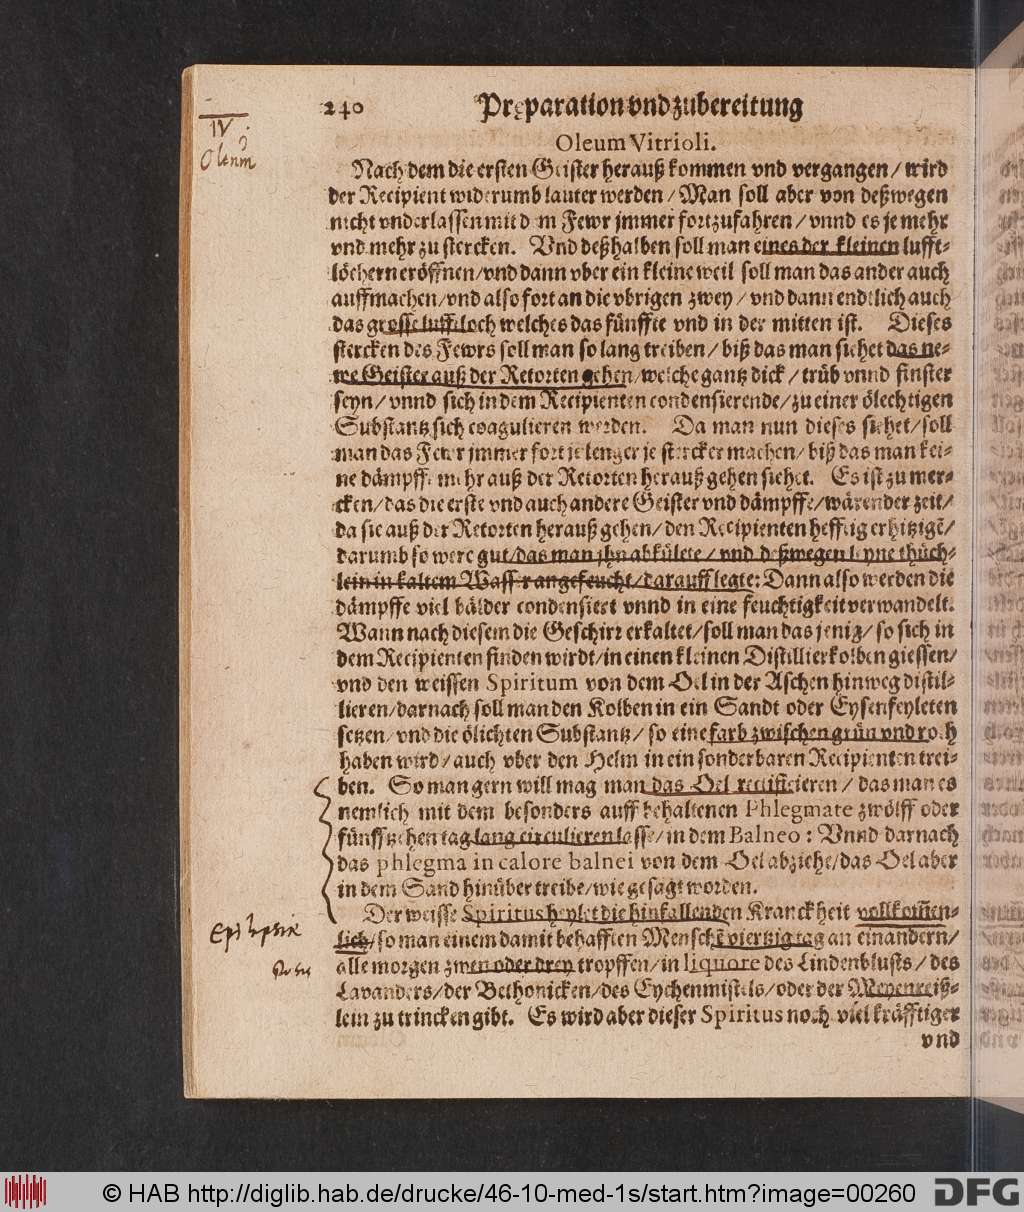 240 Pręparation vnd zubereitung
IV
Oleum
Oleum Vitrioli.
Nach dem die ersten Geister herauß kommen vnd vergangen / wird
der Recipient widerumb lauter werden / Man soll aber von deßwegen
nicht vnderlassen mit dem Fewr jmmer fortzufahren / vnnd es je mehr
vnd mehr zu stercken. Vnd deßhalben soll man eines der kleinen lufft-
löchern eröffnen / vnd dann vber ein kleine weil soll man das ander auch
auffmachen / vnd also fort an die vbrigen zwey / vnd dann endtlich auch
das grosse lufftloch welches das fünffte vnd in der mitten ist. Dieses
stercken des Fewrs soll man so lang treiben / biß das man siehet das ne-
we Geister auß der Retorten gehen / welche gantz dick / trüb vnnd finster
seyn / vnnd sich in dem Recipienten condensierende / zu einer ölechtigen
Substantz sich coagulieren werden. Da man nun dieses siehet / soll
man das Fewr jmmer fort je lenger je stercker machen / biß das man kei-
ne dämpffe mehr auß der Retorten herauß gehen siehet. Es ist zu mer-
cken / das die erste vnd auch andere Geister vnd dämpffe / wärender zeit /
da sie auß der Retorten herauß gehen / den Recipienten hefftig erhitzigē /
darumb so were gut / das man jhn abkülete / vnd deßwegen leyne thüch-
lein in kaltem Wasser angefeucht / darauff legte: Dann also werden die
dämpffe viel bälder condensiert vnnd in eine feuchtigkeit verwandelt.
Wann nach diesem die Geschirr erkaltet / soll man das jenig / so sich in
dem Recipienten finden wirdt / in einen kleinen Distillierkolben giessen /
vnd den weissen Spiritum von dem Oel in der Aschen hinweg distil-
lieren / darnach soll man den Kolben in ein Sandt oder Eysenfeyleten
setzen / vnd die ölichten Substantz / so eine farb zwischen grün vnd roth
haben wird / auch vber den Helm in ein sonderbaren Recipienten trei-
ben. So man gern will mag man das Oel rectificieren / das man es
nemlich mit dem besonders auff behaltenen Phlegmate zwölff oder
fünffzehen tag lang circulieren lasse / in dem Balneo: Vnnd darnach
das phlegma in calore balnei von dem Oel abziehe / das Oel aber
in dem Sand hinüber treibe / wie gesagt worden.
Der weisse Spiritus heylet die hinfallenden Kranckheit vollkom̃en-
lich / so man einem damit behafften Menschē viertzig tag an einandern /
alle morgen zwen oder drey tropffen / in liquore des Lindenblusts / des
Lavanders / der Bethonicken / des Eychenmistels / oder der Meyenreiß-
lein zu trincken gibt. Es wird aber dieser Spiritus noch viel kräfftiger
vnd
© HAB http://diglib.hab.de/drucke/46-10-med-1s/start.htm?image=00260
DFG